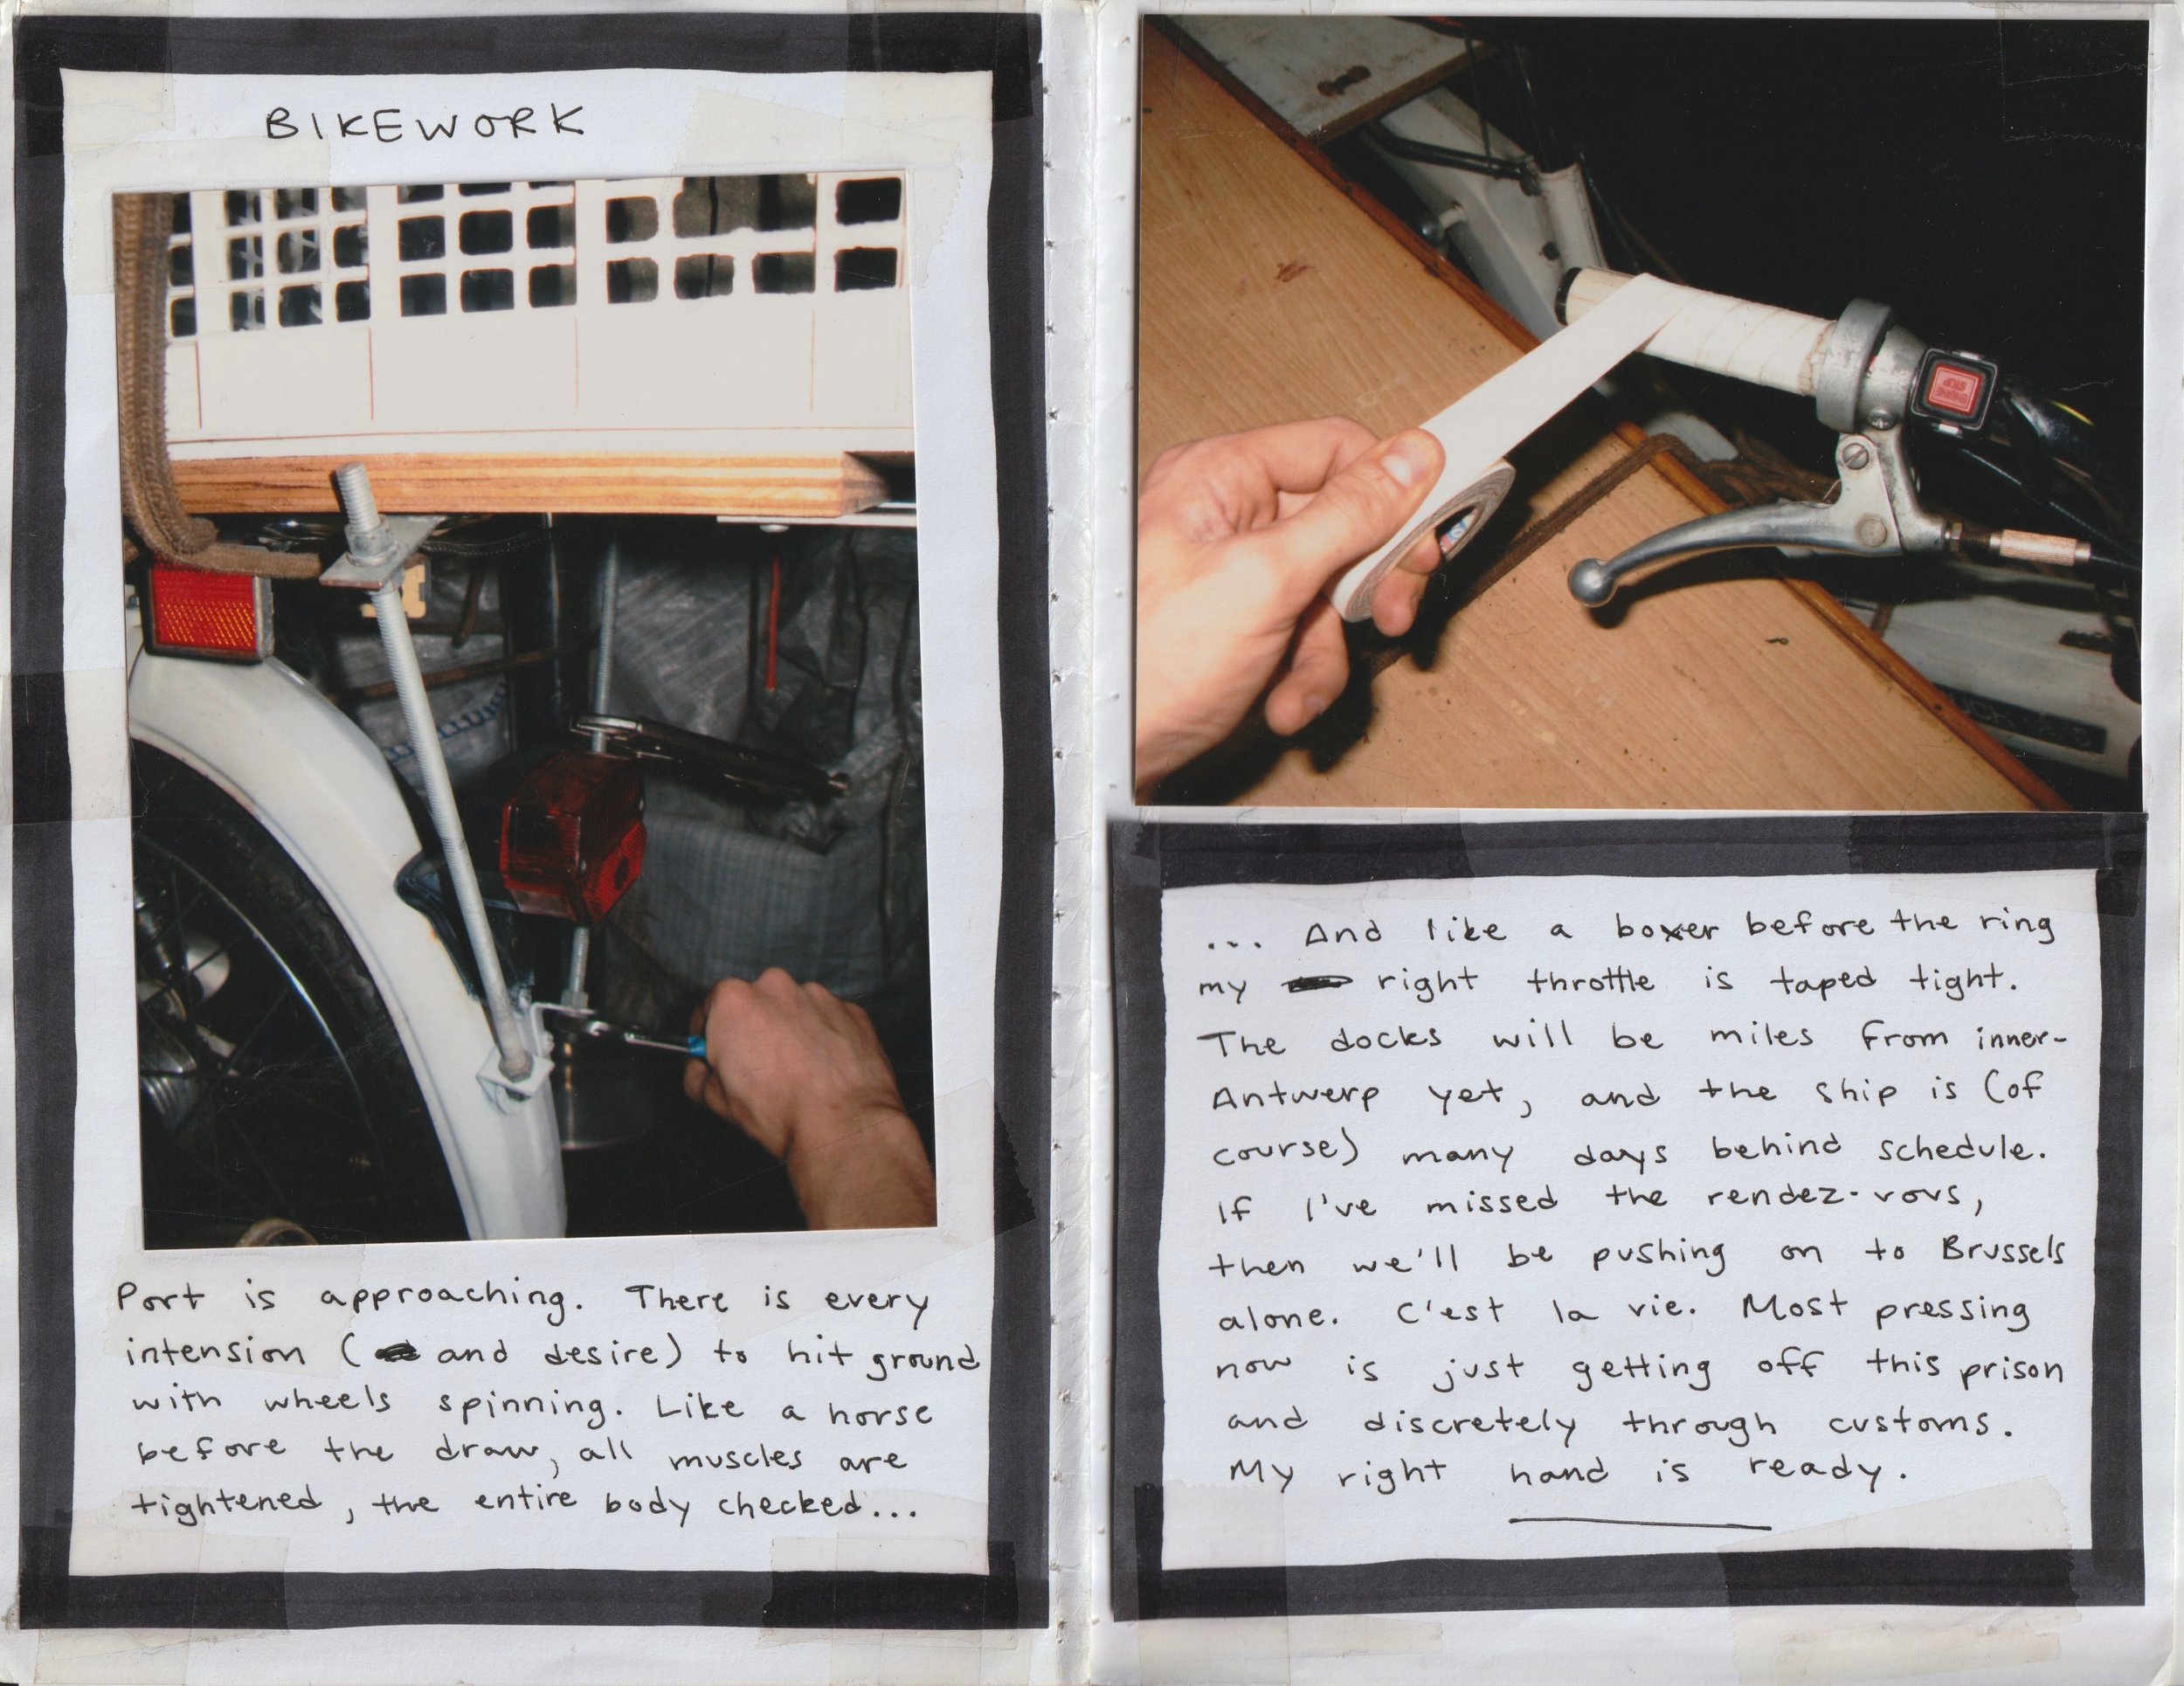 BIKEWORK
Port is approaching. There is every
intension (and desire) to hit ground
with wheels spinning. Like a horse
before the draw, all muscles are
tightened, the entire body checked...
... And like a boxer before the ring
my right throttle is taped tight.
The docks will be miles from inner-
Antwerp yet, and the ship is (of
course) many days behind schedule.
If I've missed the rendez-vous,
then we'll be pushing on to Brussels
alone. C'est la vie. Most pressing
now is just getting off this prison
and discretely through customs.
My right hand is ready.